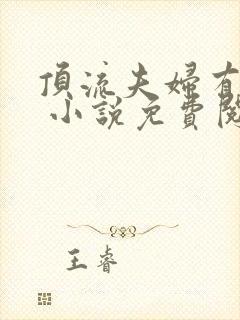 頂流夫婦有
小說免費閱
王睿